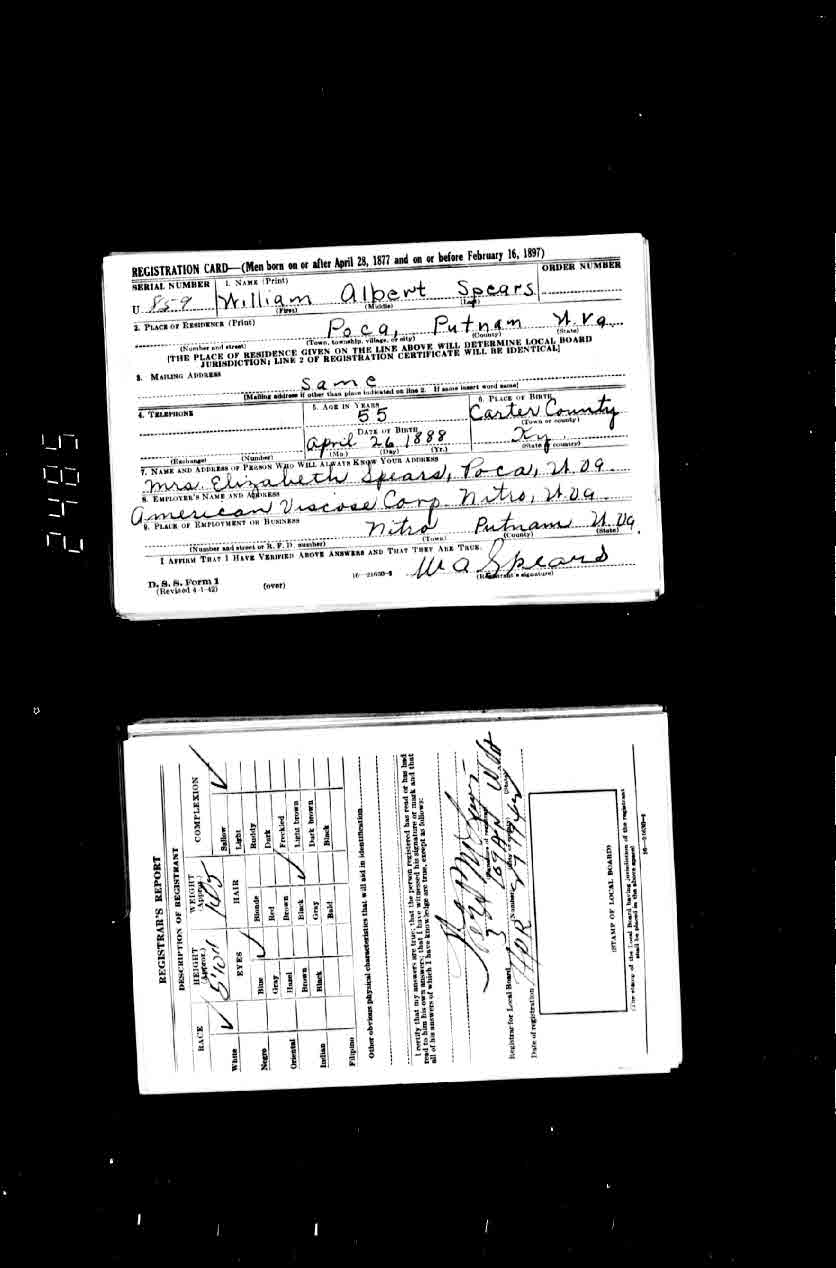 REGISTRATION CARD—(Men born on or after April 28, 1877 and on or before February 16, 1897)
SERIAL NUMBER 1. NAME (Print) ORDER NUMBER
U 859 William Albert Spears
(First) (Middle) (Last)
2. PLACE OF RESIDENCE (Print)
Poca, Putnam W.Va.
(Number and street) (Town, township, village, or city) (County) (State)
[THE PLACE OF RESIDENCE GIVEN ON THE LINE ABOVE WILL DETERMINE LOCAL BOARD
JURISDICTION; LINE 2 OF REGISTRATION CERTIFICATE WILL BE IDENTICAL]
3. MAILING ADDRESS
Same
[Mailing address if other than place indicated on line 2. If same insert word same]
4. TELEPHONE 5. AGE IN YEARS 6. PLACE OF BIRTH
55 Carter County
(Town or county)
DATE OF BIRTH
April 26 1888 Ky.
(Exchange) (Number) (Mo.) (Day) (Yr.) (State or country)
7. NAME AND ADDRESS OF PERSON WHO WILL ALWAYS KNOW YOUR ADDRESS
Mrs. Elizabeth Spears, Poca, W.Va.
8. EMPLOYER'S NAME AND ADDRESS
American Viscose Corp. Nitro, W.Va.
9. PLACE OF EMPLOYMENT OR BUSINESS
Nitro Putnam W.Va.
(Number and street or R. F. D. number) (Town) (County) (State)
I AFFIRM THAT I HAVE VERIFIED ABOVE ANSWERS AND THAT THEY ARE TRUE.
W A Spears
D. S. S. Form 1 16—21630-1 (Registrant's signature)
(Revised 4-1-42) (over)
2485
REGISTRAR'S REPORT
DESCRIPTION OF REGISTRANT
RACE HEIGHT (Approx.) WEIGHT (Approx.) COMPLEXION
5'10" 165 Sallow
White EYES HAIR Light
Blue Blonde Ruddy
Negro Gray Red Dark
Hazel Brown Freckled
Oriental Brown Black Light brown
Indian Black Gray Dark brown
Bald Black
Filipino
Other obvious physical characteristics that will aid in identification
I certify that my answers are true; that the person registered has read or has had
read to him his own answers; that I have witnessed his signature or mark and that
all of his answers of which I have knowledge are true, except as follows:
(Signature of registrar)
Registrar for Local Board
(Number) (City or county) (State)
Date of registration
(STAMP OF LOCAL BOARD)
(The stamp of the Local Board having jurisdiction of the registrant
shall be placed in the above space)
16—21630-1